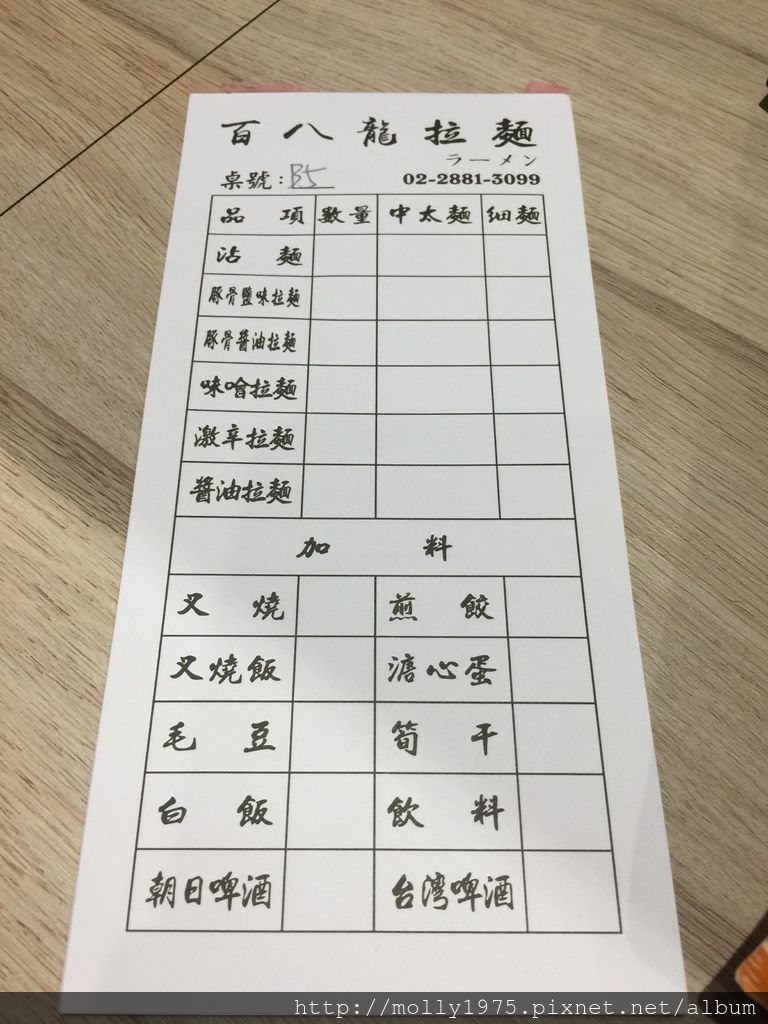 百八龍拉麵
ラーメン
桌號：B5 02-2881-3099
品項 數量 中太麵 細麵
沾麵
豚骨鹽味拉麵
豚骨醬油拉麵
味噌拉麵
激辛拉麵
醬油拉麵
加料
叉燒 煎餃
叉燒飯 溏心蛋
毛豆 筍干
白飯 飲料
朝日啤酒 台灣啤酒
http://molly1975.pixnet.net/album